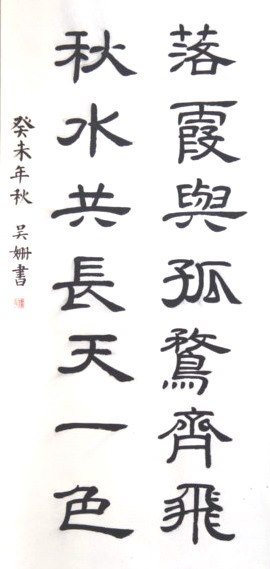 落霞與孤鶩齊飛
秋水共長天一色
癸未年秋 吴姗書